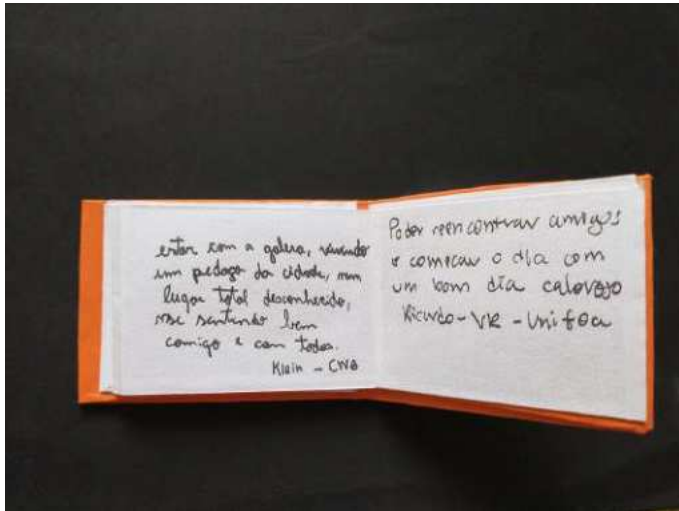 estar com a galera, vivendo
um pedaço da cidade, num
lugar total desconhecido,
me sentindo bem
comigo e com todos.
Klein - CWB
Poder reencontrar amigos
e começar o dia com
um bom dia caloroso
Ricardo - VR - UniFOA